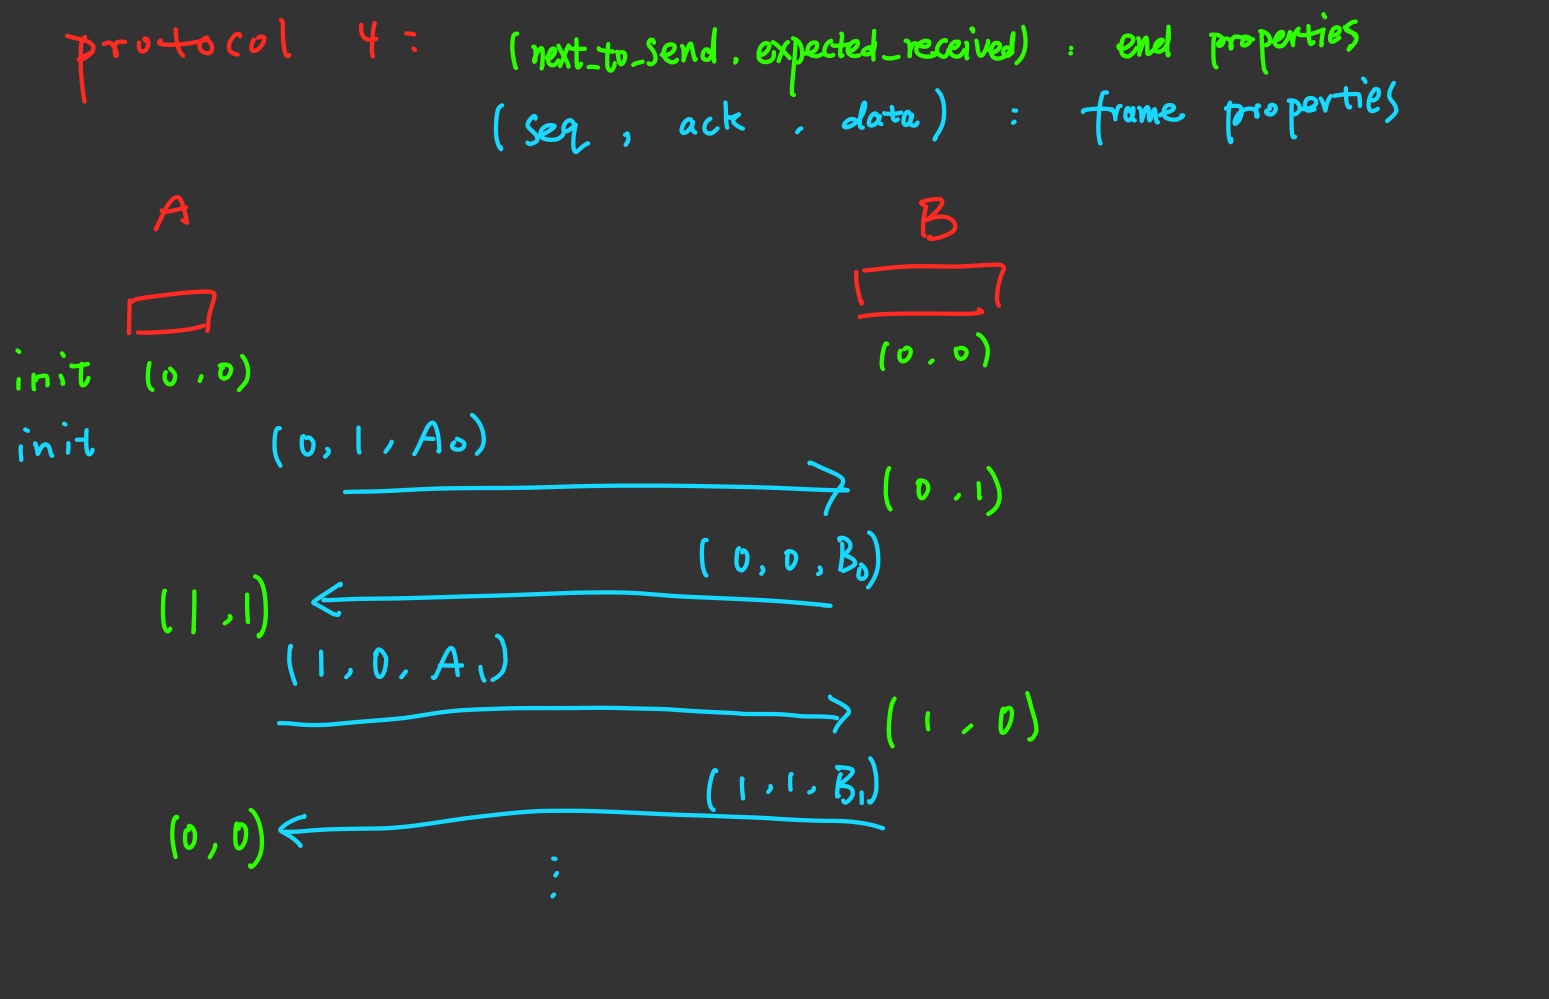 protocol 4:
(next_to_send, expected_received) : end properties
(seq, ack, data) : frame properties
A
B
init (0,0)
(0,0)
init (0,1,A0)
(0,1)
(0,0,B0)
(1,1)
(1,0,A1)
(1,0)
(1,1,B1)
(0,0)
⋮